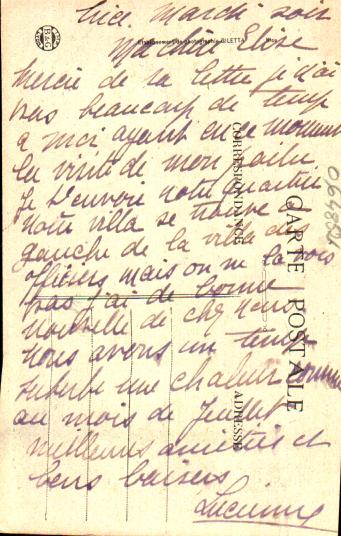 Mardi soir
Ma chère Elise
Etablissement de photographie GILETTA Nice
B&G
Merci de ta lettre je n'ai
pas beaucoup de temps
a moi ayant en ce moment
la visite de mon
Je t'envoie notre quartier
notre villa se trouve à
gauche de la villa des
officiers mais on ne la vois
pas j'ai de bonne
nouvelle de chez nous
nous avons un temps
superbe une chaleur comme
au mois de Juillet
meilleures amitiés et
bons baisers
Lucienne
CARTE POSTALE
CORRESPONDANCE
ADRESSE